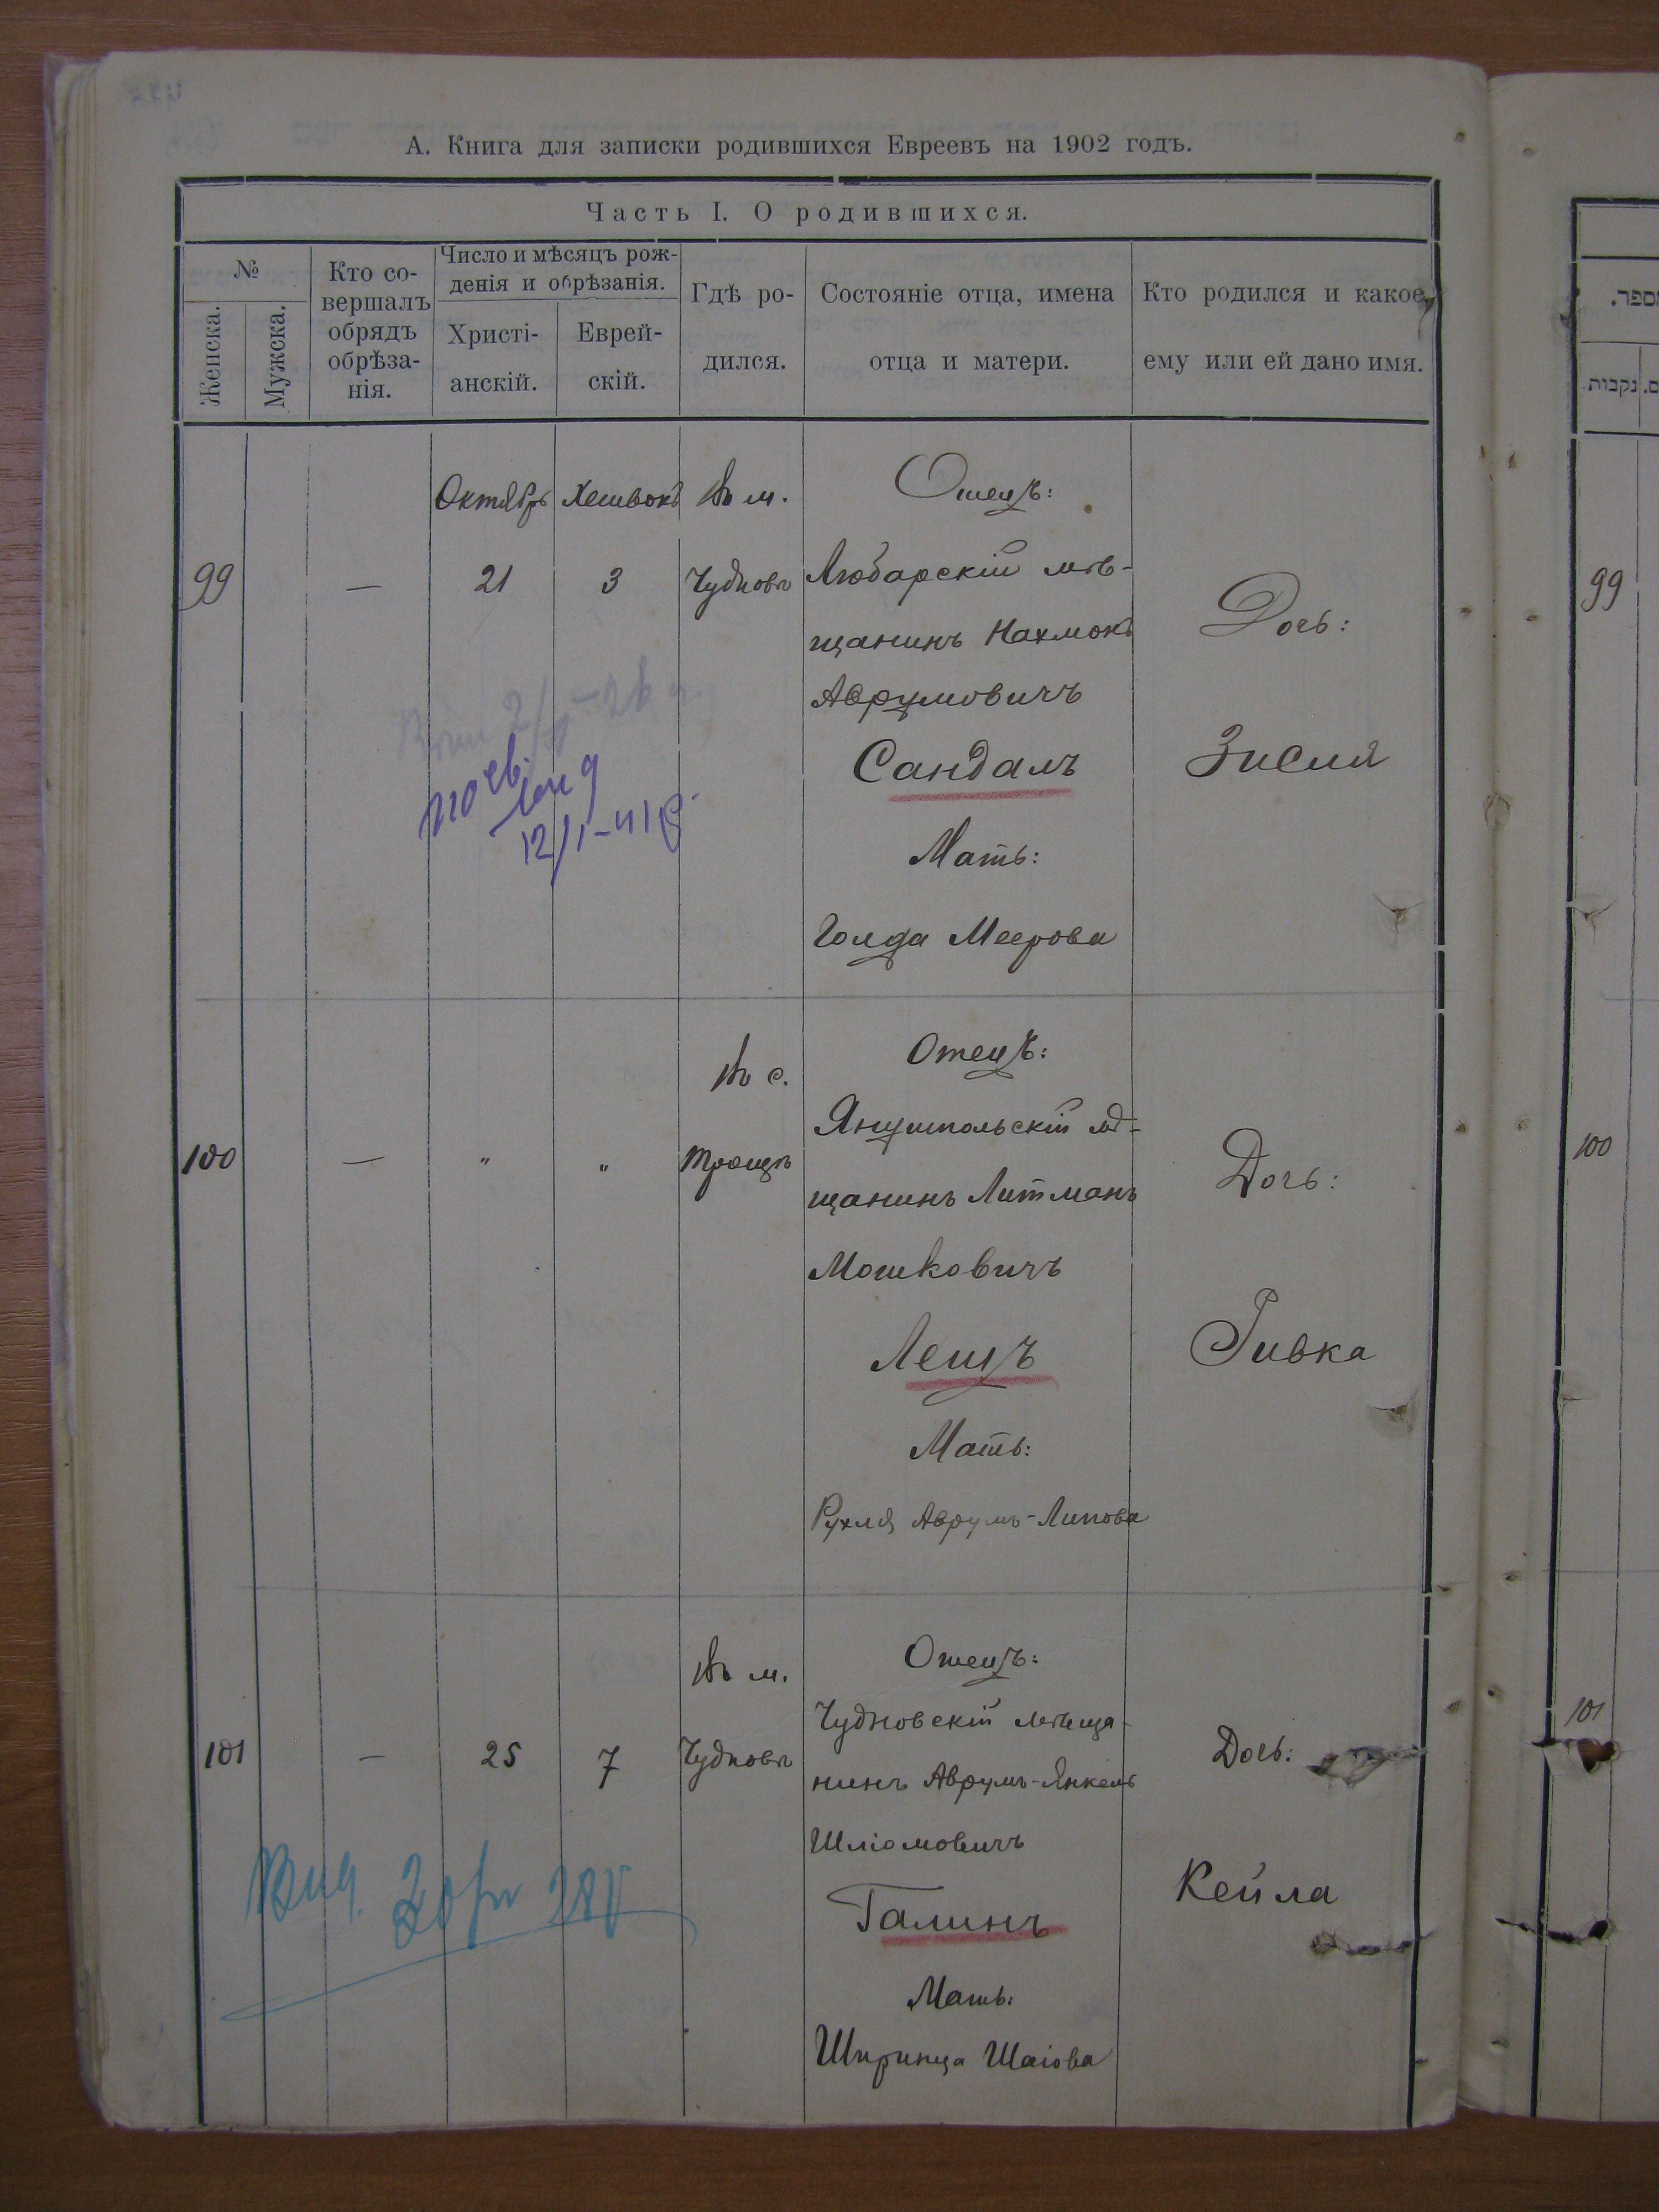 А. Книга для записки родившихся Евреевъ на 1902 годъ.
Часть I. О родившихся.
№
Женска.
Мужска.
Кто со-
вершалъ
обрядъ
обрѣза-
нія.
Число и мѣсяцъ рож-
денія и обрѣзанія.
Христі-
анскій.
Еврей-
скій.
Гдѣ ро-
дился.
Состояніе отца, имена
отца и матери.
Кто родился и какое
ему или ей дано имя.
99
—
Октябрь
21
Хешвонъ
3
Въ м.
Чудновѣ
Отецъ:
Любарскій мѣ-
щанинъ Нахмонъ
Аврумовичъ
Сандалъ
Мать:
Голда Меерова
Дочь:
Зисля
12/I-41
100
—
"
"
Въ с.
Трощѣ
Отецъ:
Янушпольскій мѣ-
щанинъ Литманъ
Мошковичъ
Лещъ
Мать:
Рухля Аврумъ-Липова
Дочь:
Ривка
101
—
25
7
Въ м.
Чудновѣ
Отецъ:
Чудновскій мѣща-
нинъ Аврумъ-Янкель
Шліомовичъ
Галинъ
Мать:
Шпринца Шаіова
Дочь:
Кейла
Вид.
99
100
101
מספר.
נקבות